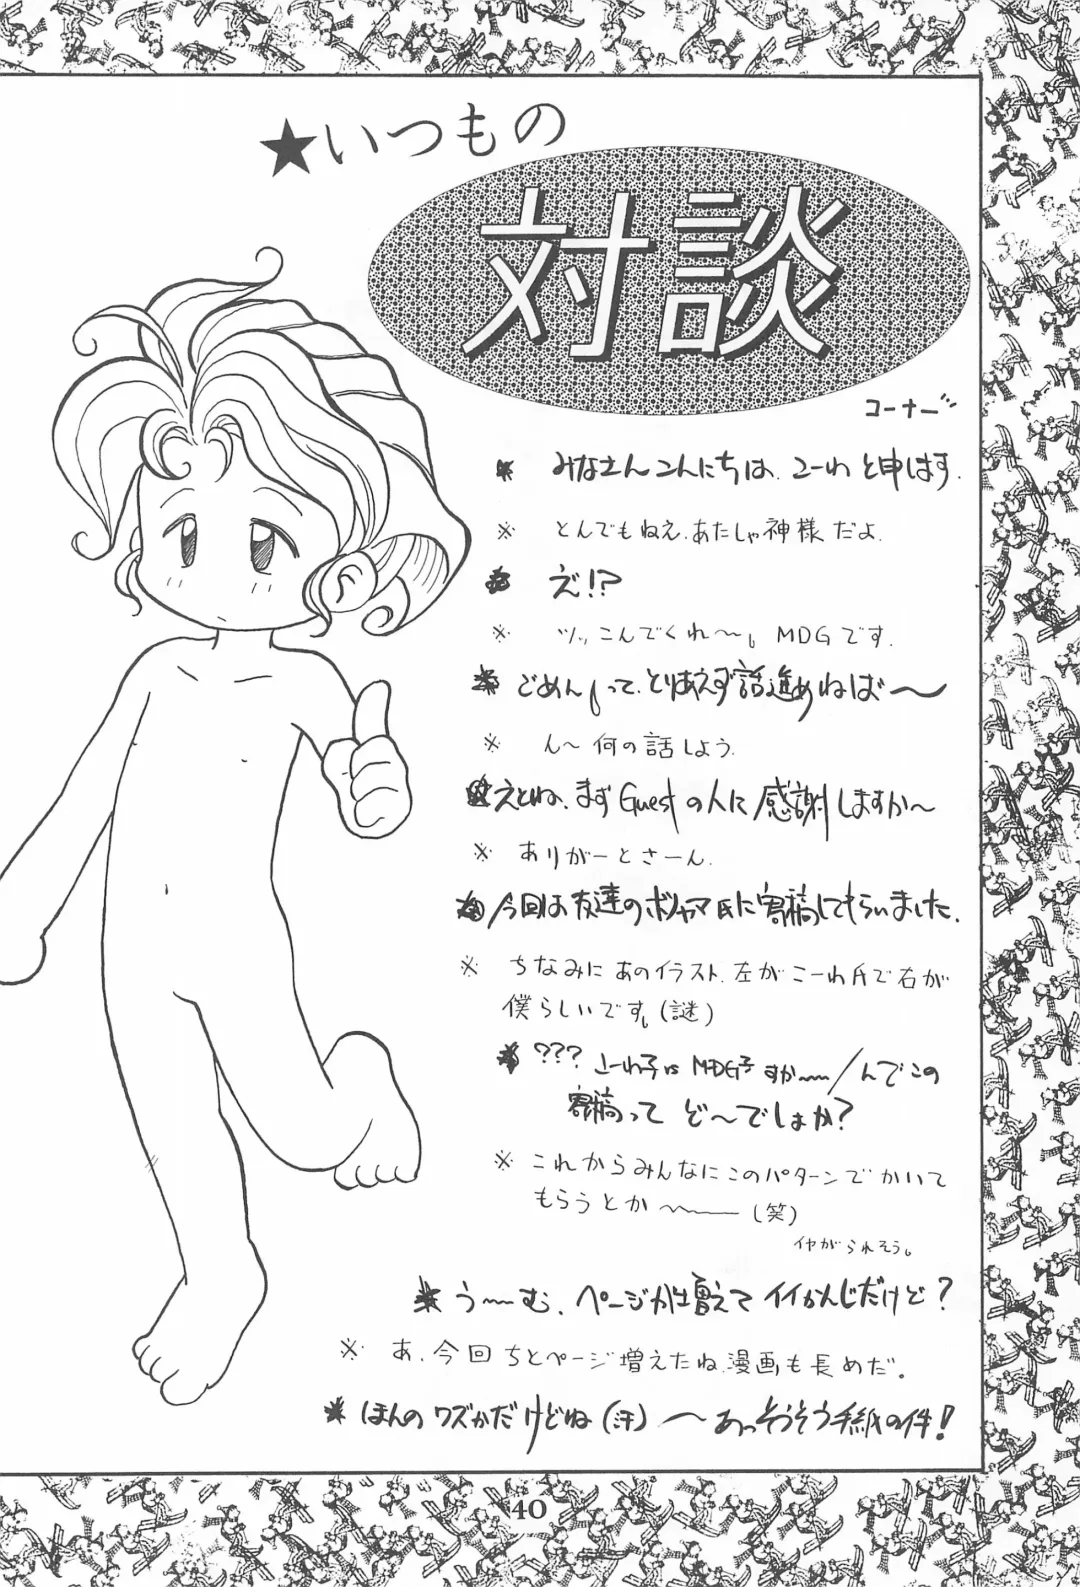 ★いつもの
対談
コーナー
＊ みなさんこんにちは、こーわと申します.
※ とんでもねえ、あたしゃ神様だよ.
＊ え!?
※ ツッこんでくれ〜。MDGです.
＊ ごめん。って、とりあえず話進めねば〜
※ ん〜何の話しよう.
＊ えとね、まずGuestの人に感謝しますか〜
※ ありがーとさーん.
＊ 今回は友達のボリヤマ氏に寄稿してもらいました.
※ ちなみにあのイラスト、左がこーわ氏で右が
僕らしいです。(謎)
＊ ??? こーわ子 vs MDG子すか〜/んでこの
寄稿って ど〜でしょか?
※ これからみんなにこのパターンでかいて
もらうとか〜 (笑)
イヤがられそう。
＊ う〜む、ページが増えてイイかんじだけど?
※ あ、今回ちとページ増えたね、漫画も長めだ。
＊ ほんのワズかだけどね(汗)〜あっそうそう手紙の件!
40